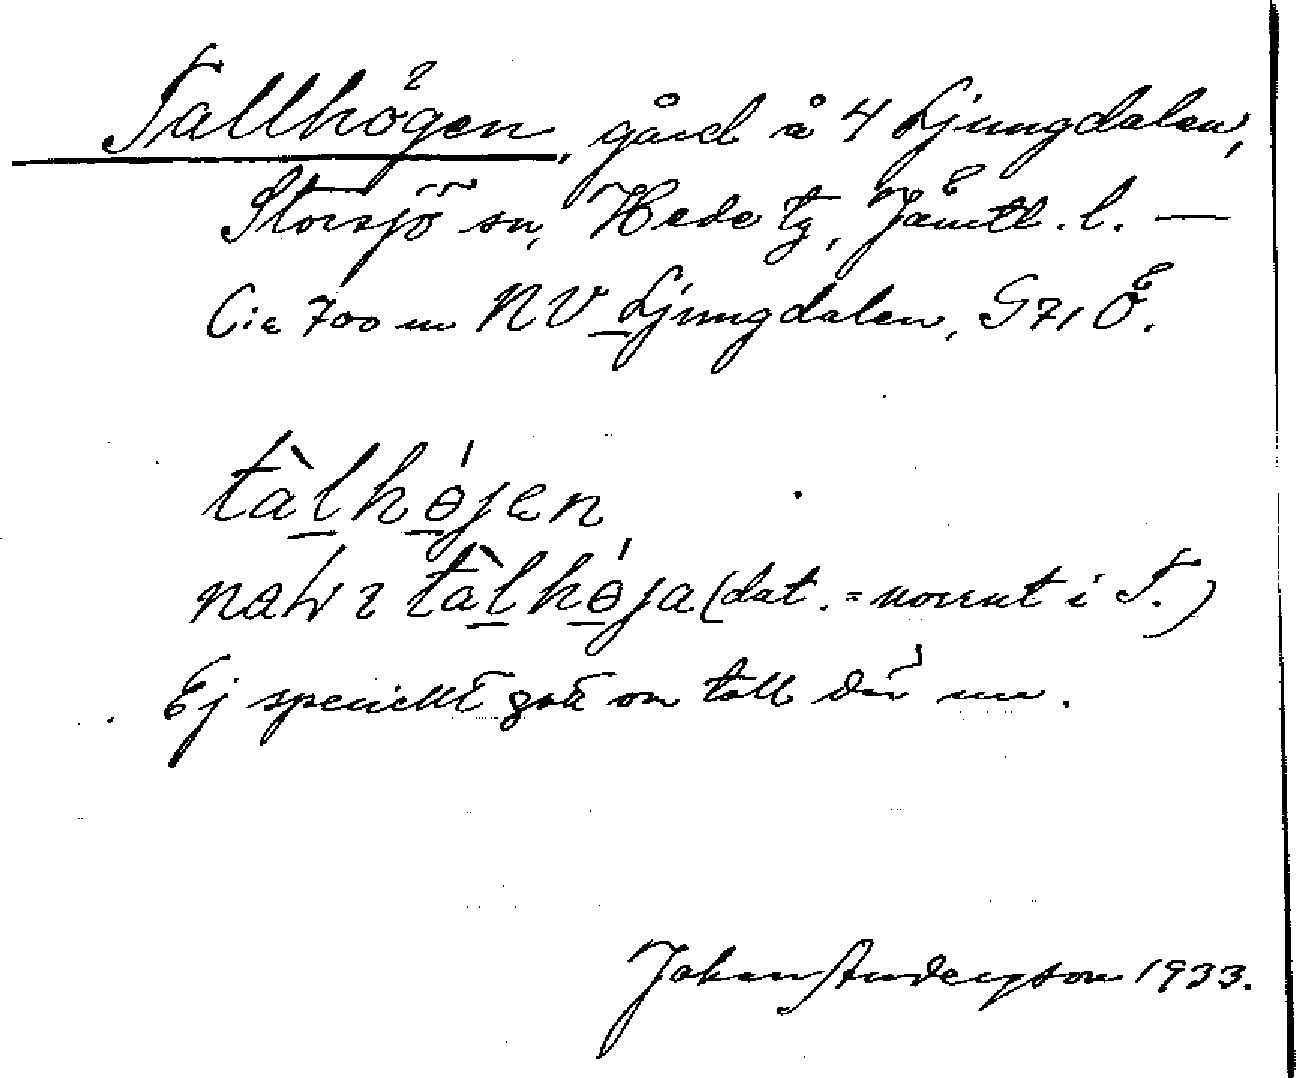 Tallhögen, gård å 4 Ljungdalen,
Storsjö sn, Hede tg, Jämtl. l. —
C:a 700 m NV Ljungdalen, G71 Ö.
tàlhǿjen
i tàlhǿja (dat. = norrut i T.)
Ej speciellt gott om tall där nu.
Johan Anderson 1933.